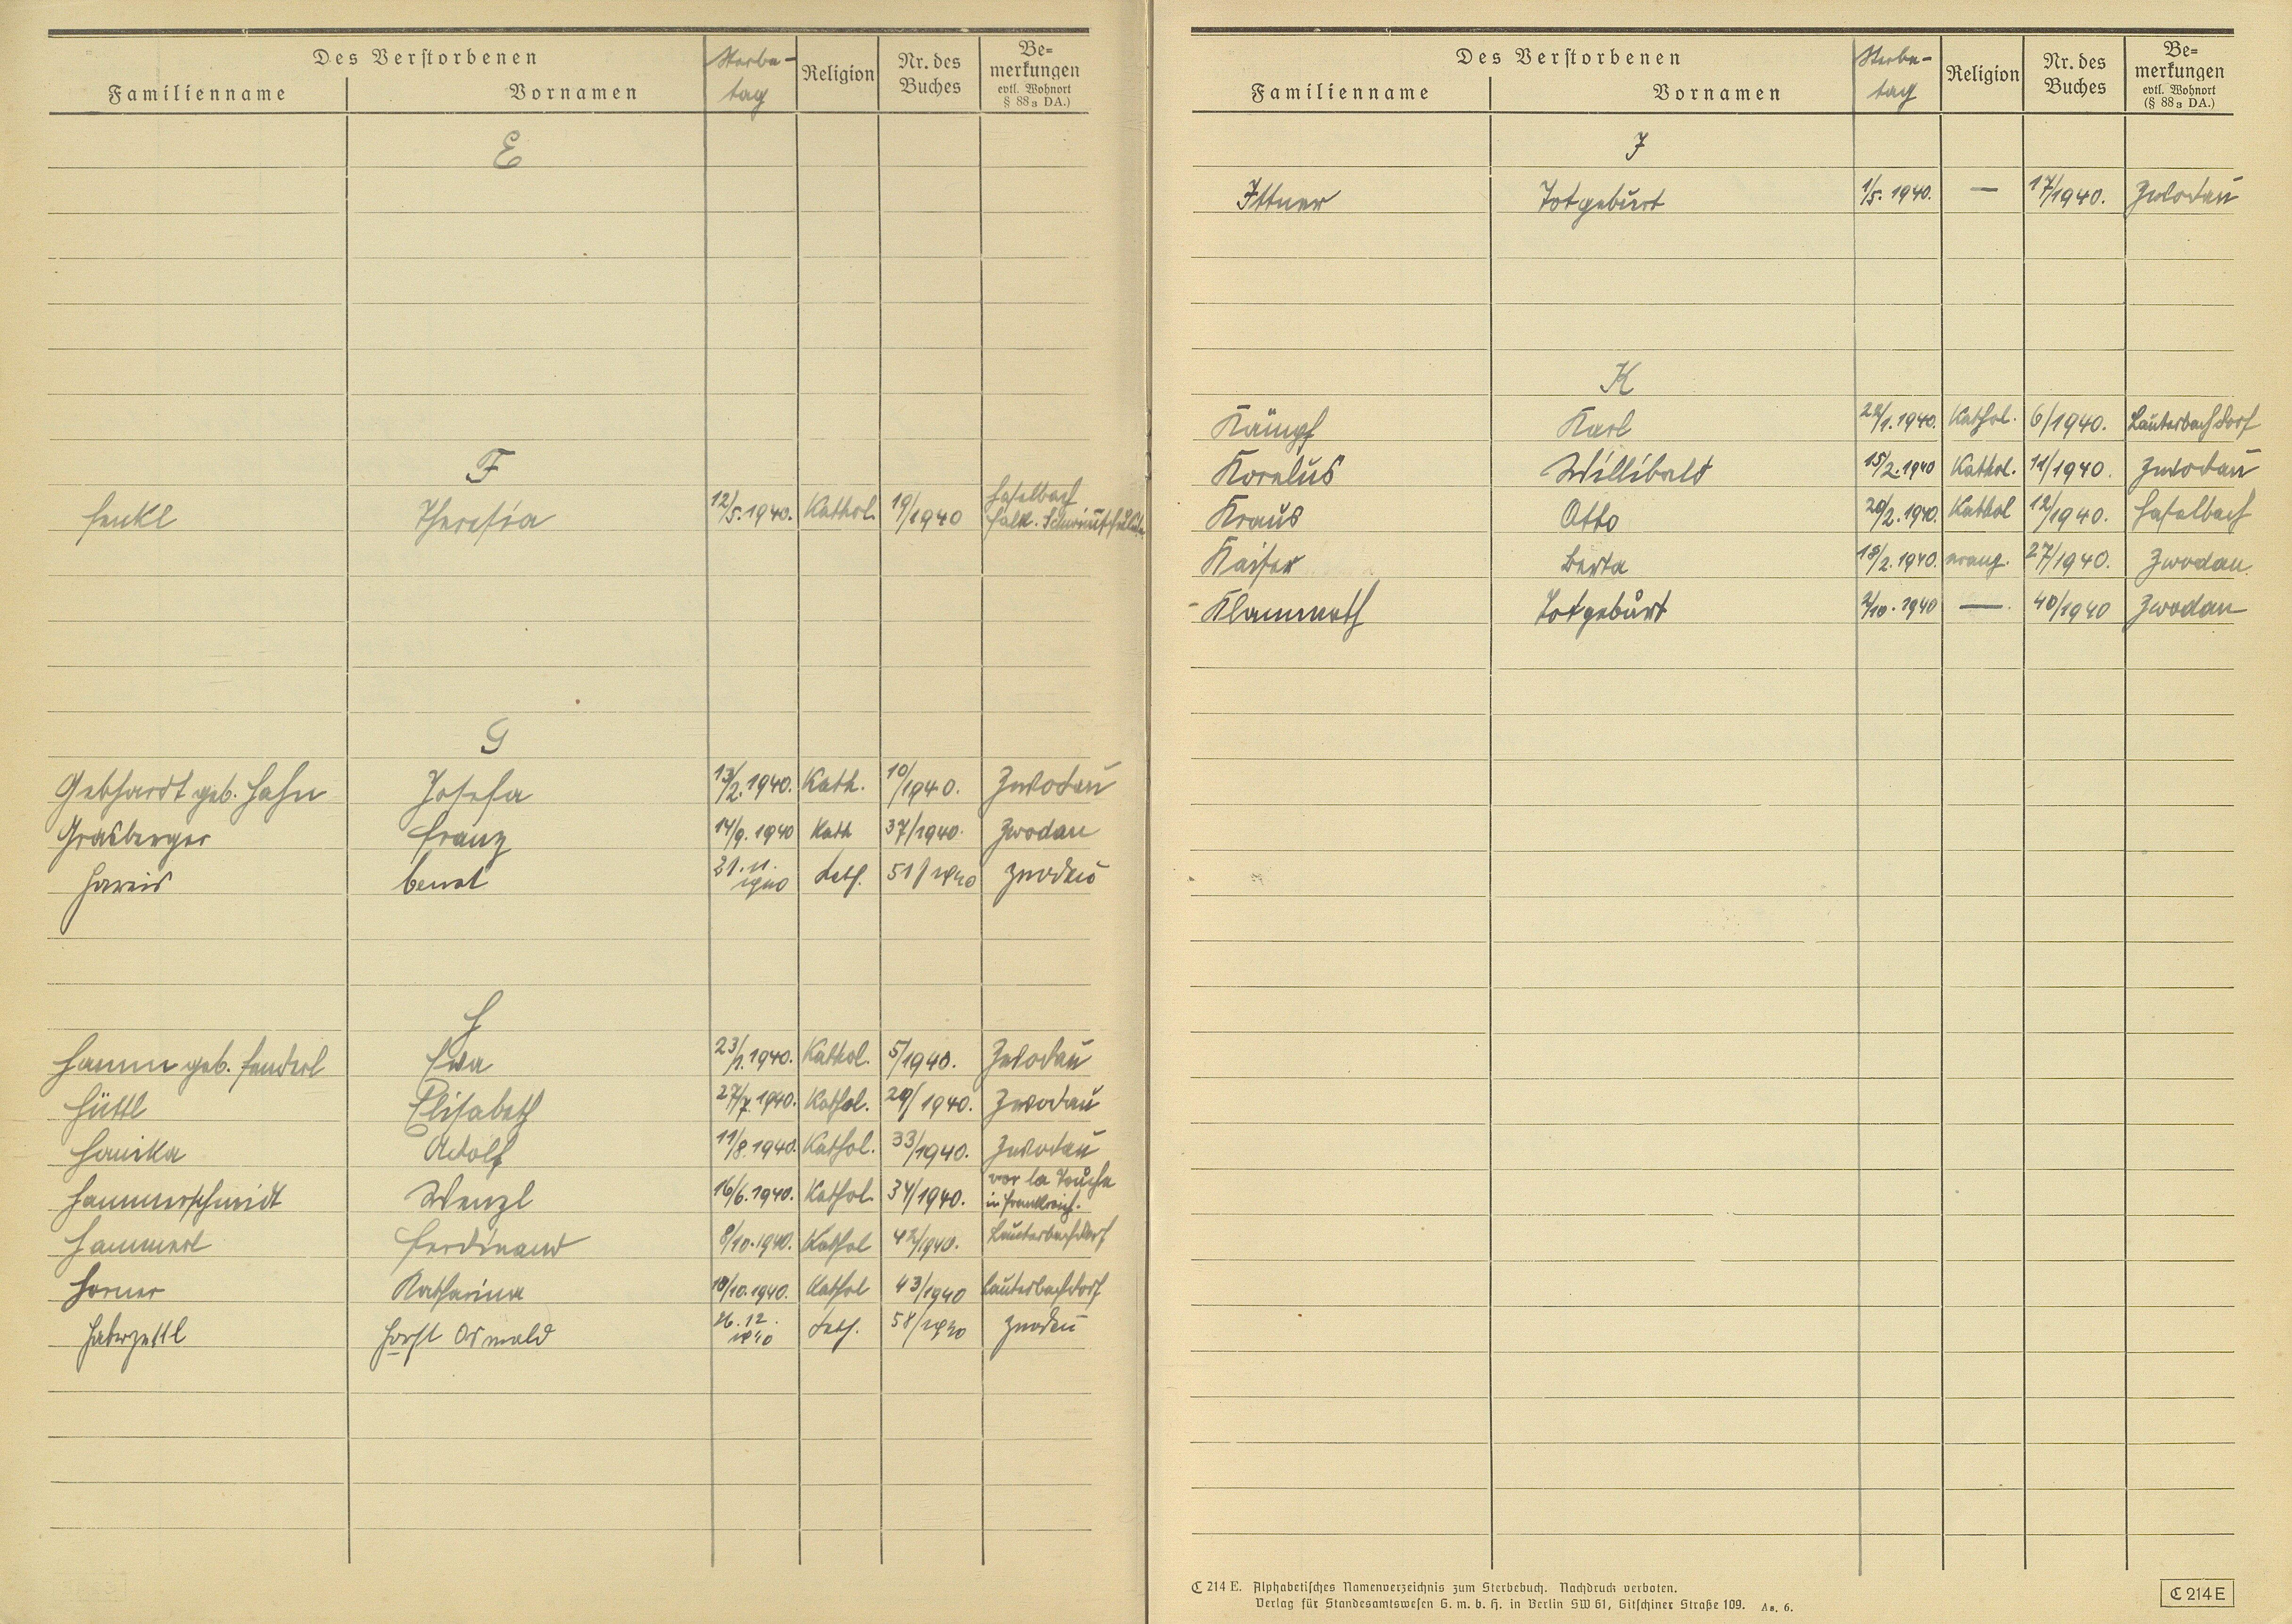 Des Verstorbenen
Familienname Vornamen Sterbe-tag Religion Nr. des Buches Be-merkungen evtl. Wohnort § 88 3 DA.)
E
F
Fenkl Theresia 12/5. 1940. Kathol. 19/1940 Haselbach
Falk.
G
Gebhardt geb. Hahn Josefa 13/2. 1940. Kath. 10/1940. Zwodau
Grasberger Franz 14/9. 1940 Kath 37/1940. Zwodau
benot 21. 11. 1940 Kath. 51/1940 Zwodau
H
Hamm geb. Fenderl Eva 23/1. 1940. Kathol. 5/1940. Zwodau
Hüttl Elisabeth 27/7. 1940. Kathol. 29/1940. Zwodau
Hanika Adolf 11/8. 1940. Kathol. 33/1940. Zwodau
Hammerschmidt Wenzl 16/6. 1940. Kathol. 34/1940. vor la Touche
in Frankreich.
Hammerl Ferdinand 8/10. 1940. Kathol 42/1940. Lauterbachdorf
Horner Katharina 10/10. 1940. Kathol 43/1940 Lauterbachdorf
Haberzettl Horst Oswald 26. 12. 1940 Kath. 58/1940 Zwodau
Des Verstorbenen
Familienname Vornamen Sterbe-tag Religion Nr. des Buches Be-merkungen evtl. Wohnort (§ 88 3 DA.)
J
Ittner Totgeburt 1/5. 1940. — 17/1940. Zwodau
K
Kämpf Karl 22/1. 1940. Kathol. 6/1940. Lauterbach Dorf
Kornlus Willibald 15/2. 1940 Kathol. 11/1940. Zwodau
Kraus Otto 20/2. 1940. Kathol 12/1940. Haselbach
Kaiser Berta 18/2. 1940. evang. 27/1940. Zwodau
Klamroth Totgeburt 2/10. 1940 — 40/1940 Zwodau
C 214 E. Alphabetisches Namenverzeichnis zum Sterbebuch. Nachdruck verboten.
Verlag für Standesamtswesen G. m. b. H. in Berlin SW 61, Gitschiner Straße 109. As. 6.
C 214 E